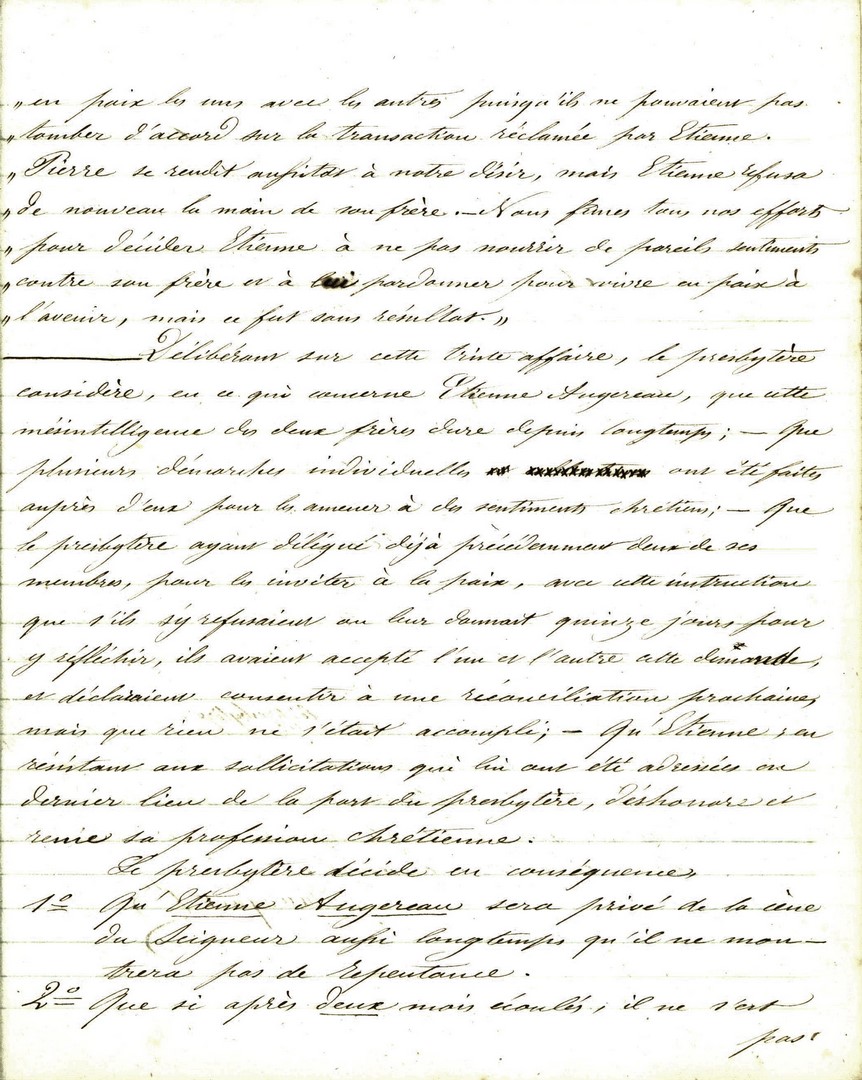 „ en paix les uns avec les autres puisqu'ils ne pouvaient pas
„ tomber d'accord sur la transaction réclamée par Etienne.
„ Pierre se rendit aussitôt à notre désir, mais Etienne refusa
„ de nouveau la main de son frère. — Nous fimes tous nos efforts
„ pour décider Etienne à ne pas nourrir de pareils sentiments
„ contre son frère et à lui pardonner pour vivre en paix à
„ l'avenir, mais ce fut sans résultat. „
Délibérant sur cette triste affaire, le presbytère
considère, en ce qui concerne Etienne Augereau, que cette
mésintelligence des deux frères dure depuis longtemps; — Que
plusieurs démarches individuelles ont été faites
auprès d'eux pour les amener à des sentiments chrétiens; — Que
le presbytère ayant délégué déjà précédemment deux de ses
membres, pour les inviter à la paix, avec cette instruction
que s'ils s'y refusaient on leur donnait quinze jours pour
y réfléchir, ils avaient accepté l'un et l'autre cette demande,
et déclaraient consentir à une réconciliation prochaine,
mais que rien ne s'était accompli; — Qu'Etienne, en
résistant aux sollicitations qui lui ont été adressées en
dernier lieu de la part du presbytère, déshonore et
renie sa profession chrétienne.
Le presbytère décide en conséquence,
1º Qu'Etienne Augereau sera privé de la cène
du Seigneur aussi longtemps qu'il ne mon—
trera pas de repentance.
2º Que si après deux mois écoulés, il ne s'est
pas